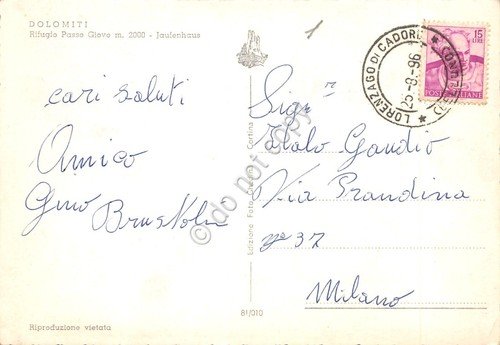 DOLOMITI
Rifugio Passo Giovo m. 2000 - Jaufenhaus
1
cari saluti
Amico
Gino
Sig.r
Italo Gaudio
Via Prandina
n° 37
Milano
LORENZAGO DI CADORE
15
LIRE
POSTE ITALIANE
Edizione Foto Cortina
81/010
Riproduzione vietata
do not copy